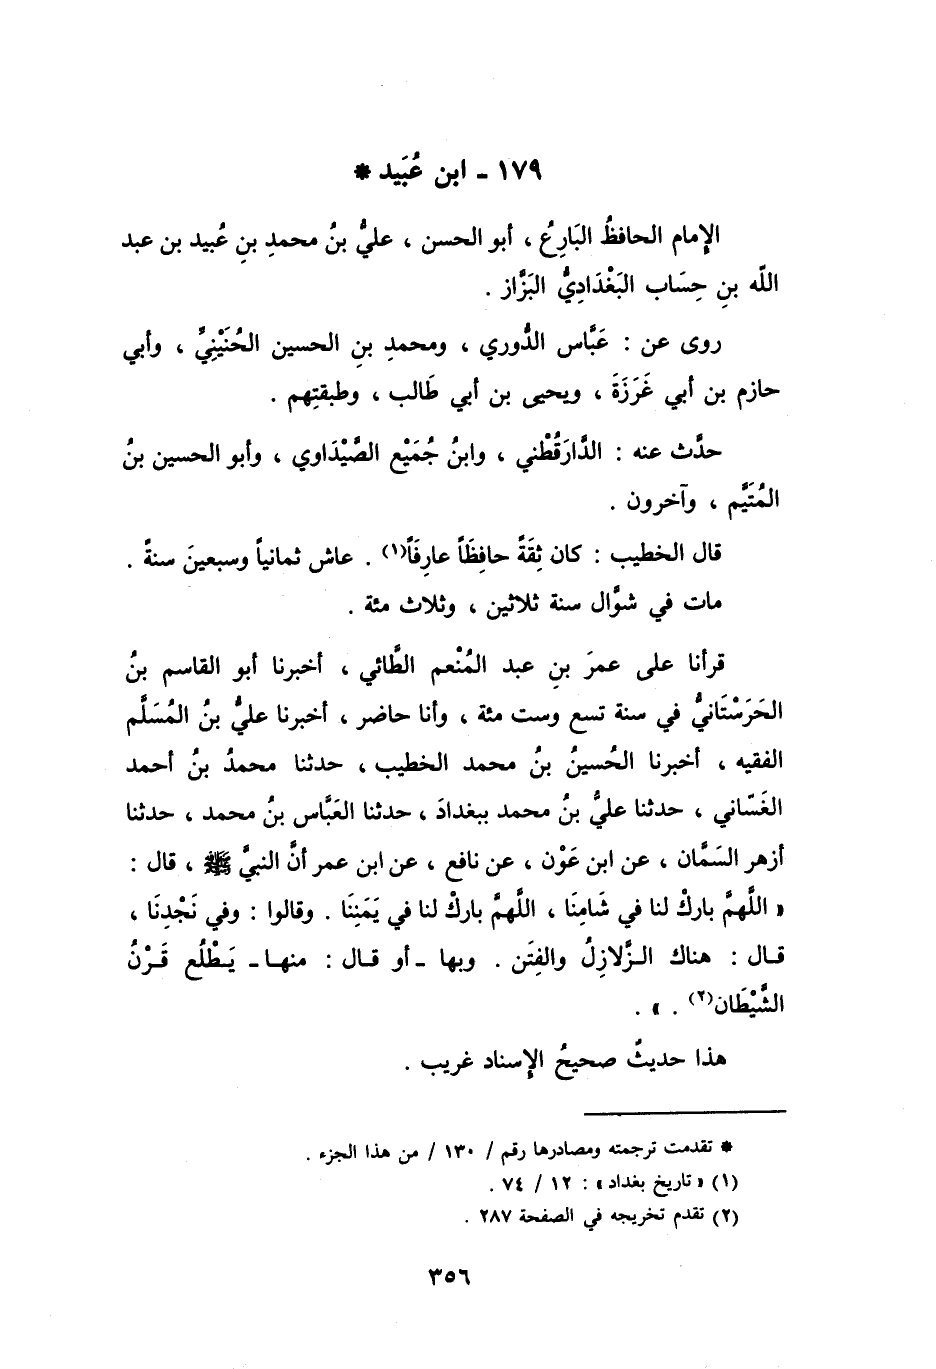 ١٧٩ - ابن عُبَيد *
الإمام الحافظُ البَارِعُ ، أبو الحسن ، عليُّ بنُ محمدِ بنِ عُبيد بن عبد
اللّه بنِ حِسَاب البَغْدَاديُّ البَزَّاز .
روى عن : عَبَّاس الدُّوري ، ومحمدِ بنِ الحسين الحُنَيْنِيِّ ، وأبي
حازم بن أبي غَرَزَةَ ، ويحيى بن أبي طَالب ، وطبقتِهم .
حدَّث عنه : الدَّارَقُطْني ، وابنُ جُمَيْع الصَّيْدَاوي ، وأبو الحسين بنُ
المُتَيَّم ، وآخرون .
قال الخطيب : كان ثِقَةً حافِظَاً عارِفَاً(١) . عاش ثمانياً وسبعينَ سنةً .
مات في شوَّال سنة ثلاثين ، وثلاث مئة .
قرأنا على عمرَ بنِ عبد المُنْعم الطَّائي ، أخبرنا أبو القاسم بنُ
الحَرَسْتَانيُّ في سنة تسع وست مئة ، وأنا حاضر ، أخبرنا عليُّ بنُ المُسَلَّم
الفقيه ، أخبرنا الحُسينُ بنُ محمد الخطيب ، حدثنا محمدُ بنُ أحمد
الغَسّاني ، حدثنا عليُّ بنُ محمد ببغدادَ ، حدثنا العَبَّاس بنُ محمد ، حدثنا
أزهر السَمَّان ، عن ابن عَوْن ، عن نافع ، عن ابن عمر أنَّ النبيَّ ﷺ ، قال :
« اللَّهمَّ باركْ لنا في شَامِنَا ، اللَّهمَّ باركْ لنا في يَمَنِنَا . وقالوا : وفي نَجْدِنَا ،
قال : هناك الزَّلازِلُ والفِتَن . وبها - أو قال : منها - يَطْلُع قَرْنُ
الشَّيْطَان(٢) . » .
هذا حديثٌ صحيحُ الإسناد غريب .
* تقدمت ترجمته ومصادرها رقم / ١٣٠ / من هذا الجزء .
(١) « تاريخ بغداد » : ١٢ / ٧٤ .
(٢) تقدم تخريجه في الصفحة ٢٨٧ .
٣٥٦